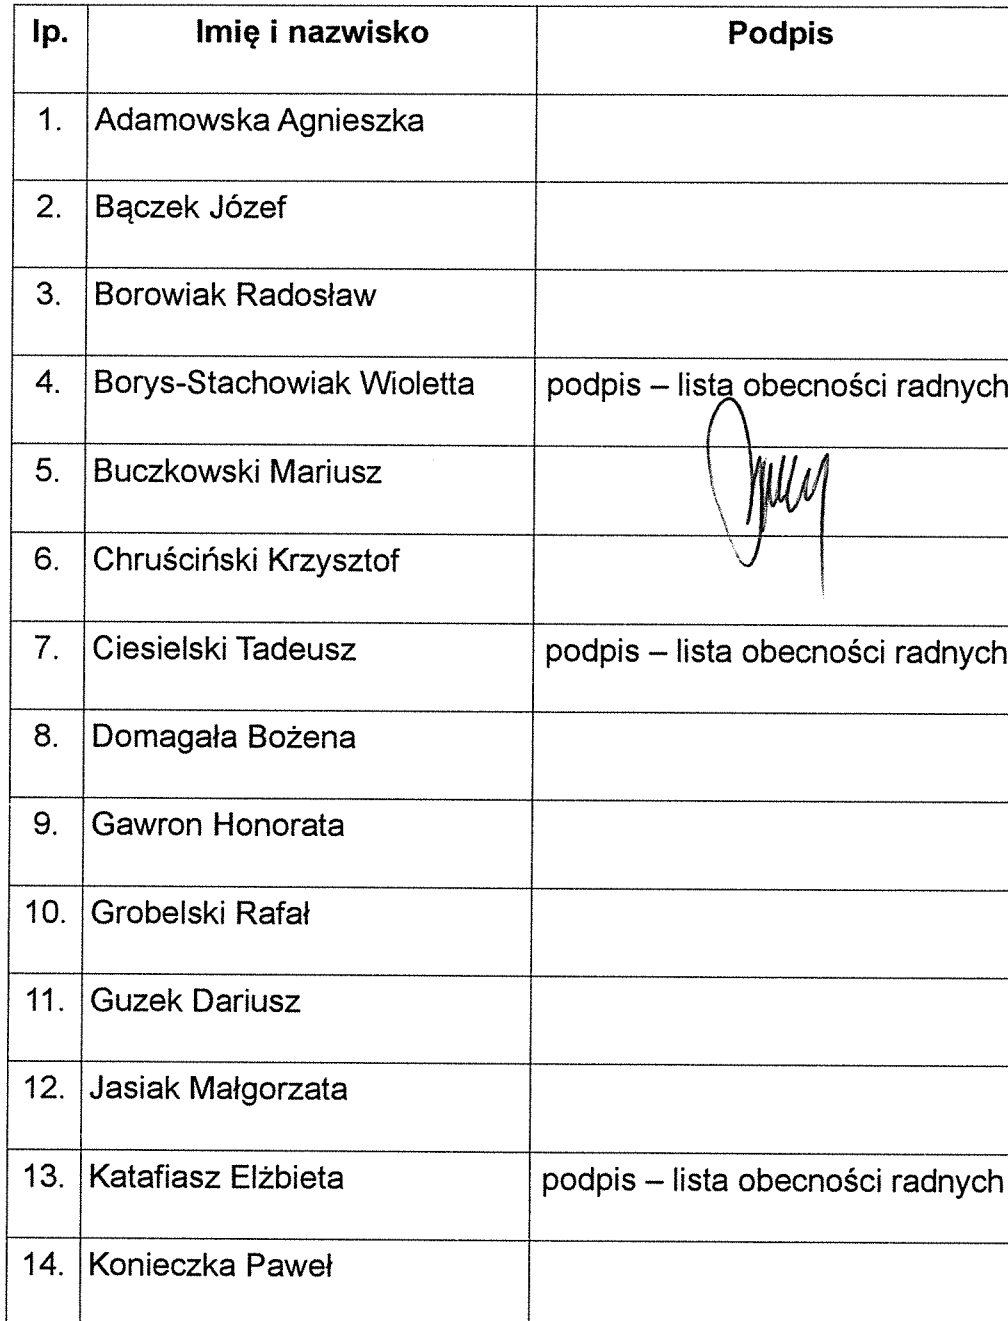 lp. Imię i nazwisko Podpis
1. Adamowska Agnieszka
2. Bączek Józef
3. Borowiak Radosław
4. Borys-Stachowiak Wioletta podpis – lista obecności radnych
5. Buczkowski Mariusz
6. Chruściński Krzysztof
7. Ciesielski Tadeusz podpis – lista obecności radnych
8. Domagała Bożena
9. Gawron Honorata
10. Grobelski Rafał
11. Guzek Dariusz
12. Jasiak Małgorzata
13. Katafiasz Elżbieta podpis – lista obecności radnych
14. Konieczka Paweł